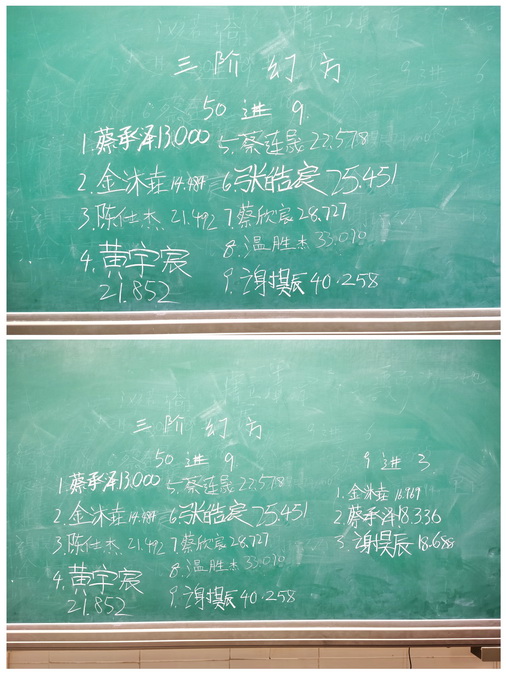 三阶幻方
50进9
1.蔡承泽13.000 5.蔡连晟22.578
2.金沐垚14.484 6.张皓宸25.451
3.陈仕杰 21.492 7.蔡欣宸28.727
4.黄宇宸 8.温胜杰33.090
21.852 9.谢撰辰40.258
三阶幻方
50进9 9进3
1.蔡承泽13.000 5.蔡连晟22.578 1.金沐垚16.969
2.金沐垚14.484 6.张皓宸25.451 2.蔡承泽18.336
3.陈仕杰 21.492 7.蔡欣宸28.727 3.谢撰辰18.688
4.黄宇宸 8.温胜杰33.090
21.852 9.谢撰辰40.258